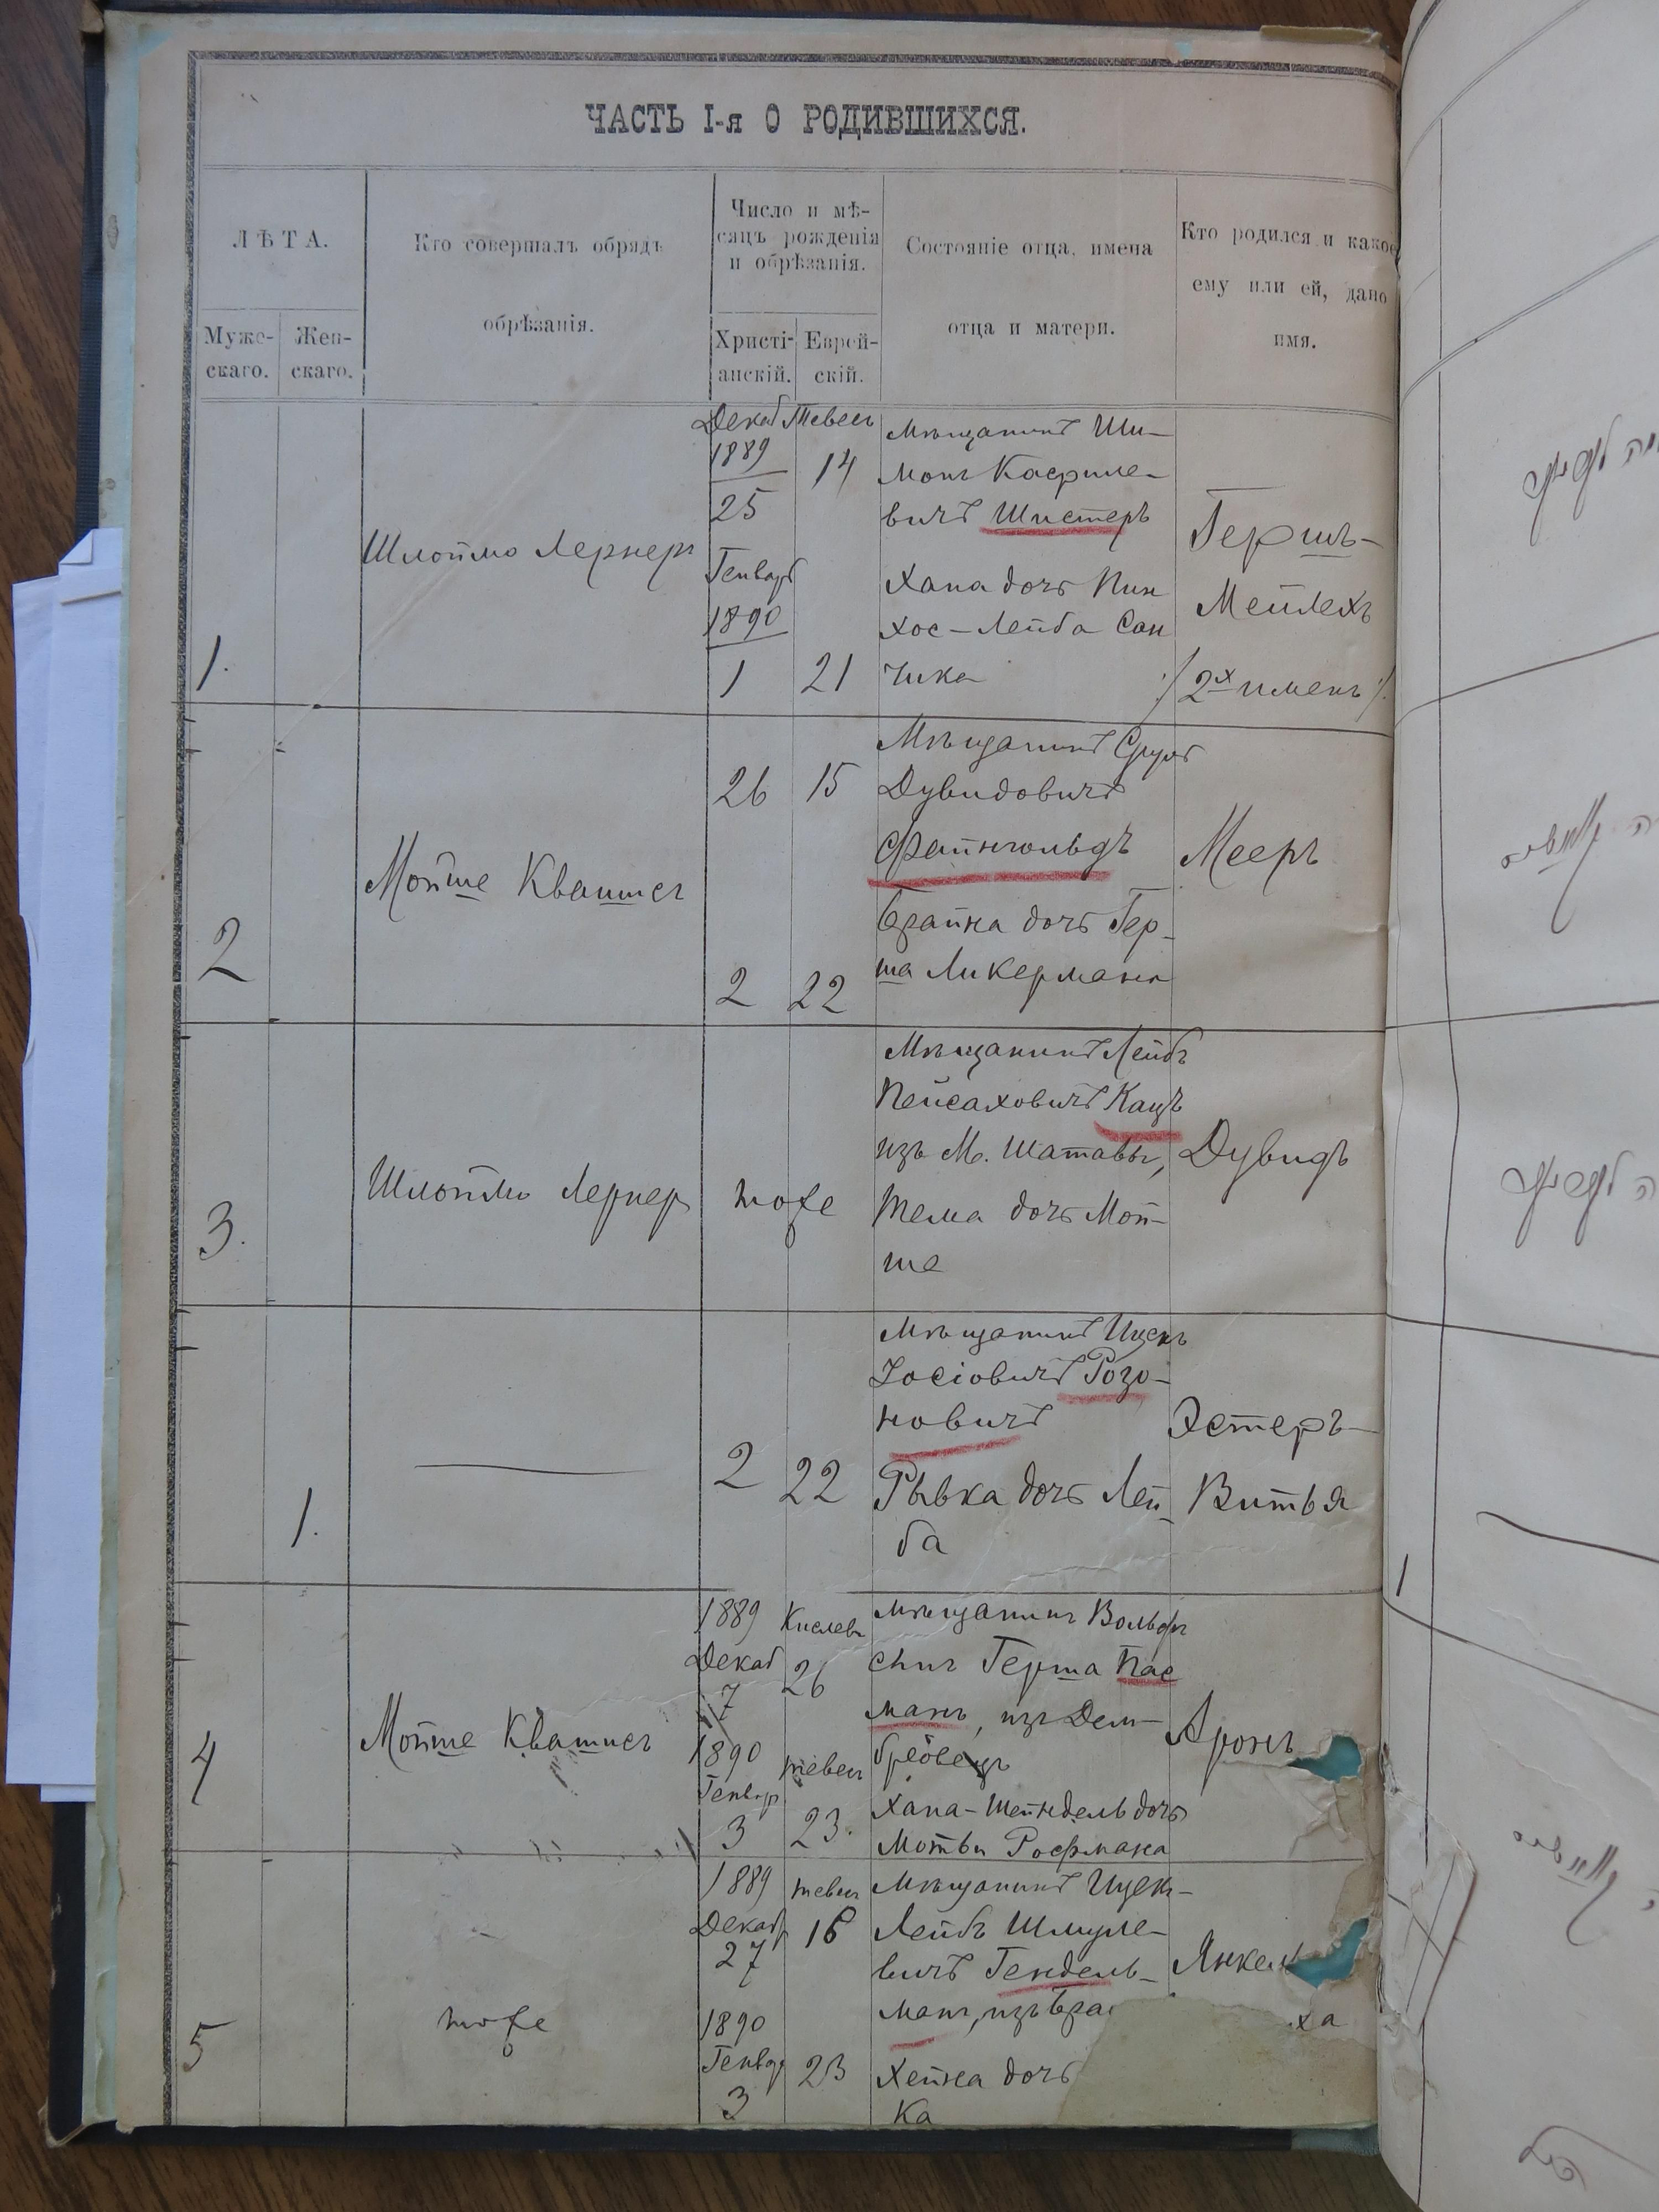 ЧАСТЬ I-я О РОДИВШИХСЯ.
ЛѢТА.
Муже-
скаго.
Жен-
скаго.
Кто совершалъ обрядъ
обрѣзанія.
Число и мѣ-
сяцъ рожденія
и обрѣзанія.
Христі-
анскій.
Еврей-
скій.
Состояніе отца, имена
отца и матери.
Кто родился и какое
ему или ей, дано
имя.
1.
Шлоймо Лернеръ
Декаб
1889
25
Генваръ
1890
1
Тевесъ
14
21
Мѣщанинъ Ши-
монъ Касриле-
вичъ Шистеръ
Хана дочь Пин
хос-Лейба Сан
чика
Гершъ-
Мейлехъ
/2х именъ/
2
Мойше Квашесъ
26
15
2
22
Мѣщанинъ Сруль
Дувидовичъ
Файнгольдъ
Брайна дочь Гер-
ша Ликермана
Мееръ
3.
Шлоймо Лернеръ
тоже
Мѣщанинъ Лейбъ
Пейсаховичъ Кацъ
изъ М. Шатавы,
Тема дочь Мой-
ше
Дувидъ
1.
2
22
Мѣщанинъ Ицекъ
Іосіовичъ Розо-
новичъ
Рывка дочь Лей-
ба
Эстеръ-
Витья
4
Мойше Квашесъ
1889
Декаб
7
1890
Генвар
3
Кислевъ
26
тевесъ
23.
Мѣщанинъ Вольфъ
сынъ Герша Пас
манъ, изъ Дем-
бровецъ
Хана-Шейндель дочь
Мотьи Росфмана
Аронъ
5
тоже
1889
Декаб
27
1890
Генвар
3
тевес
16
23
Мѣщанинъ Ицек-
Лейбъ Шмуле-
вичъ Гендель-
манъ, изъ Бра
Хейна дочь
ка
Янкель
ха
1